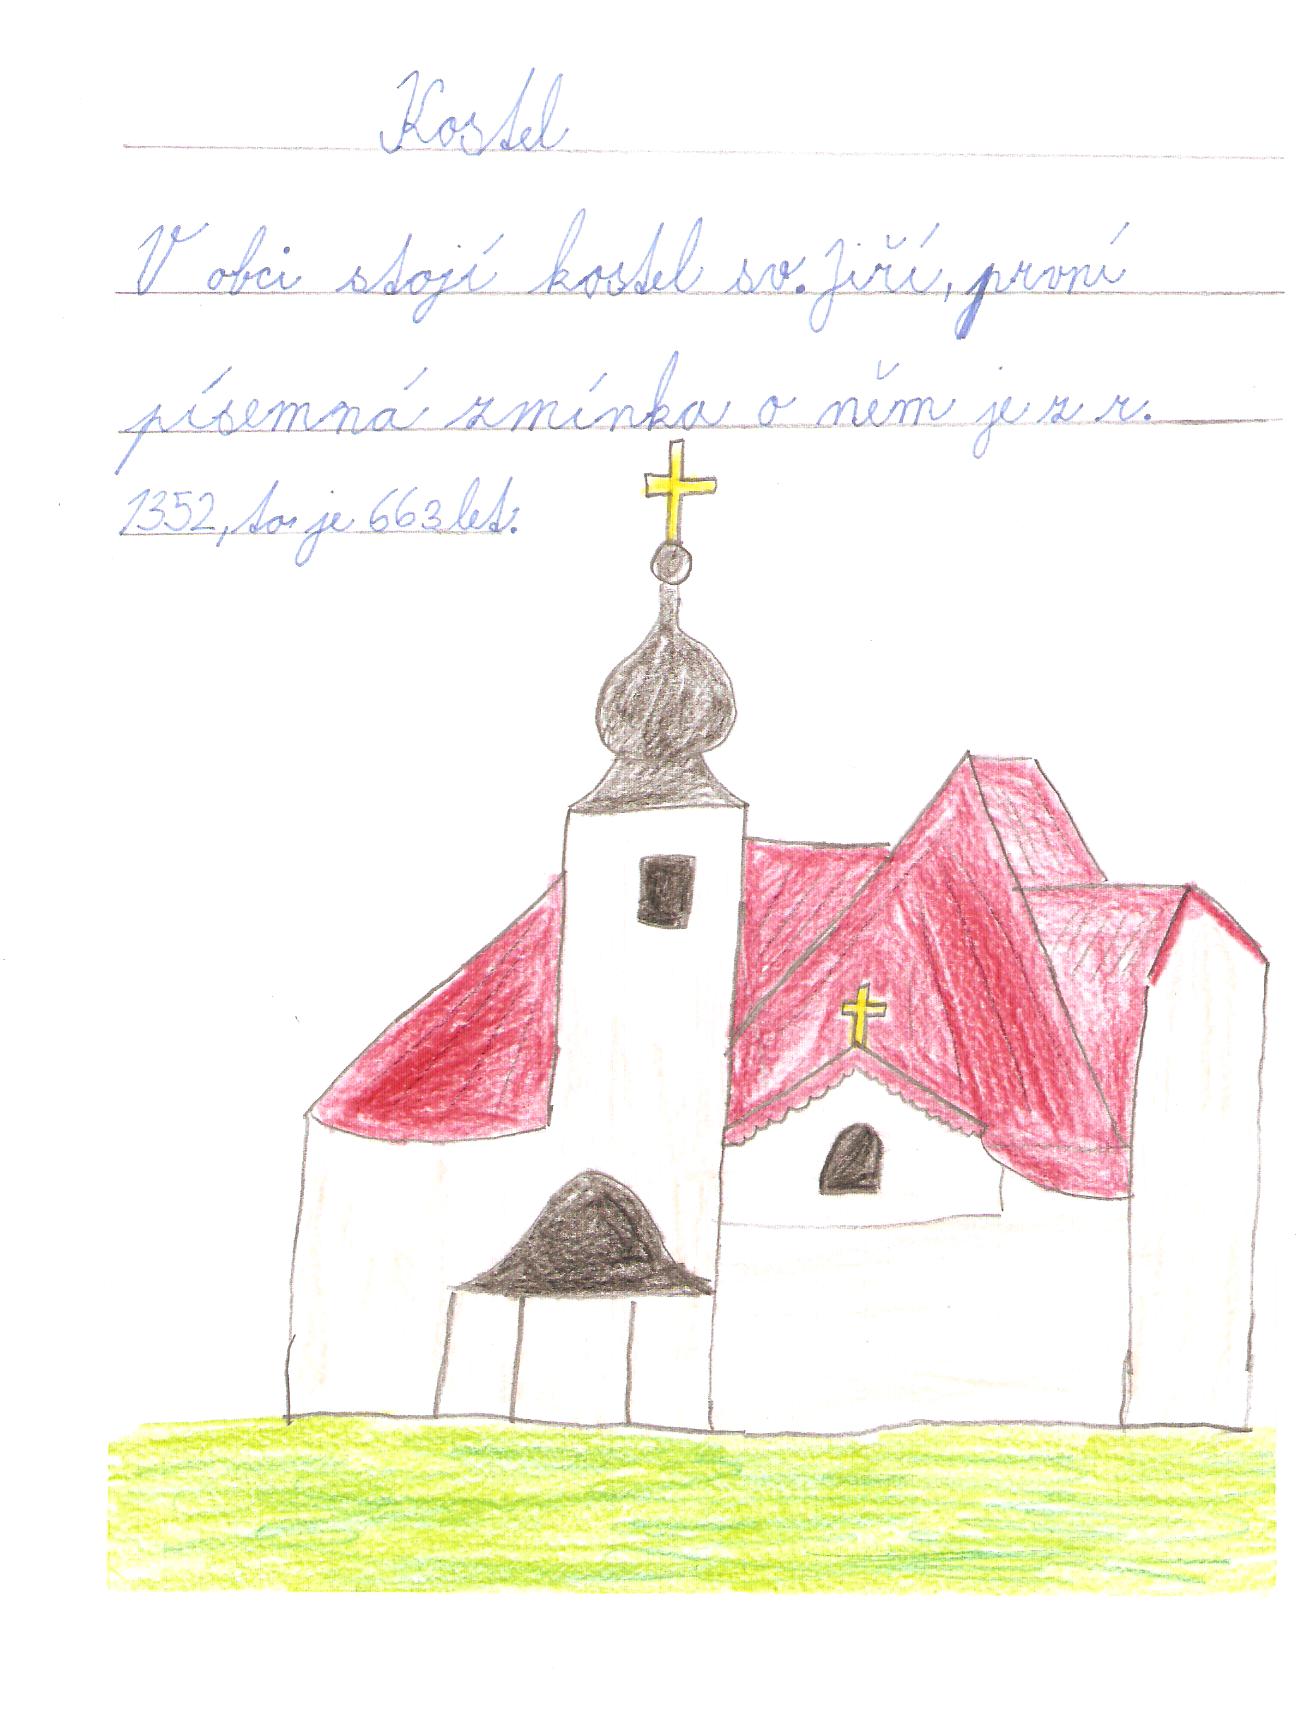 Kostel
V obci stojí kostel sv. Jiří, první
písemná zmínka o něm je z r.
1352, to je 663 let.